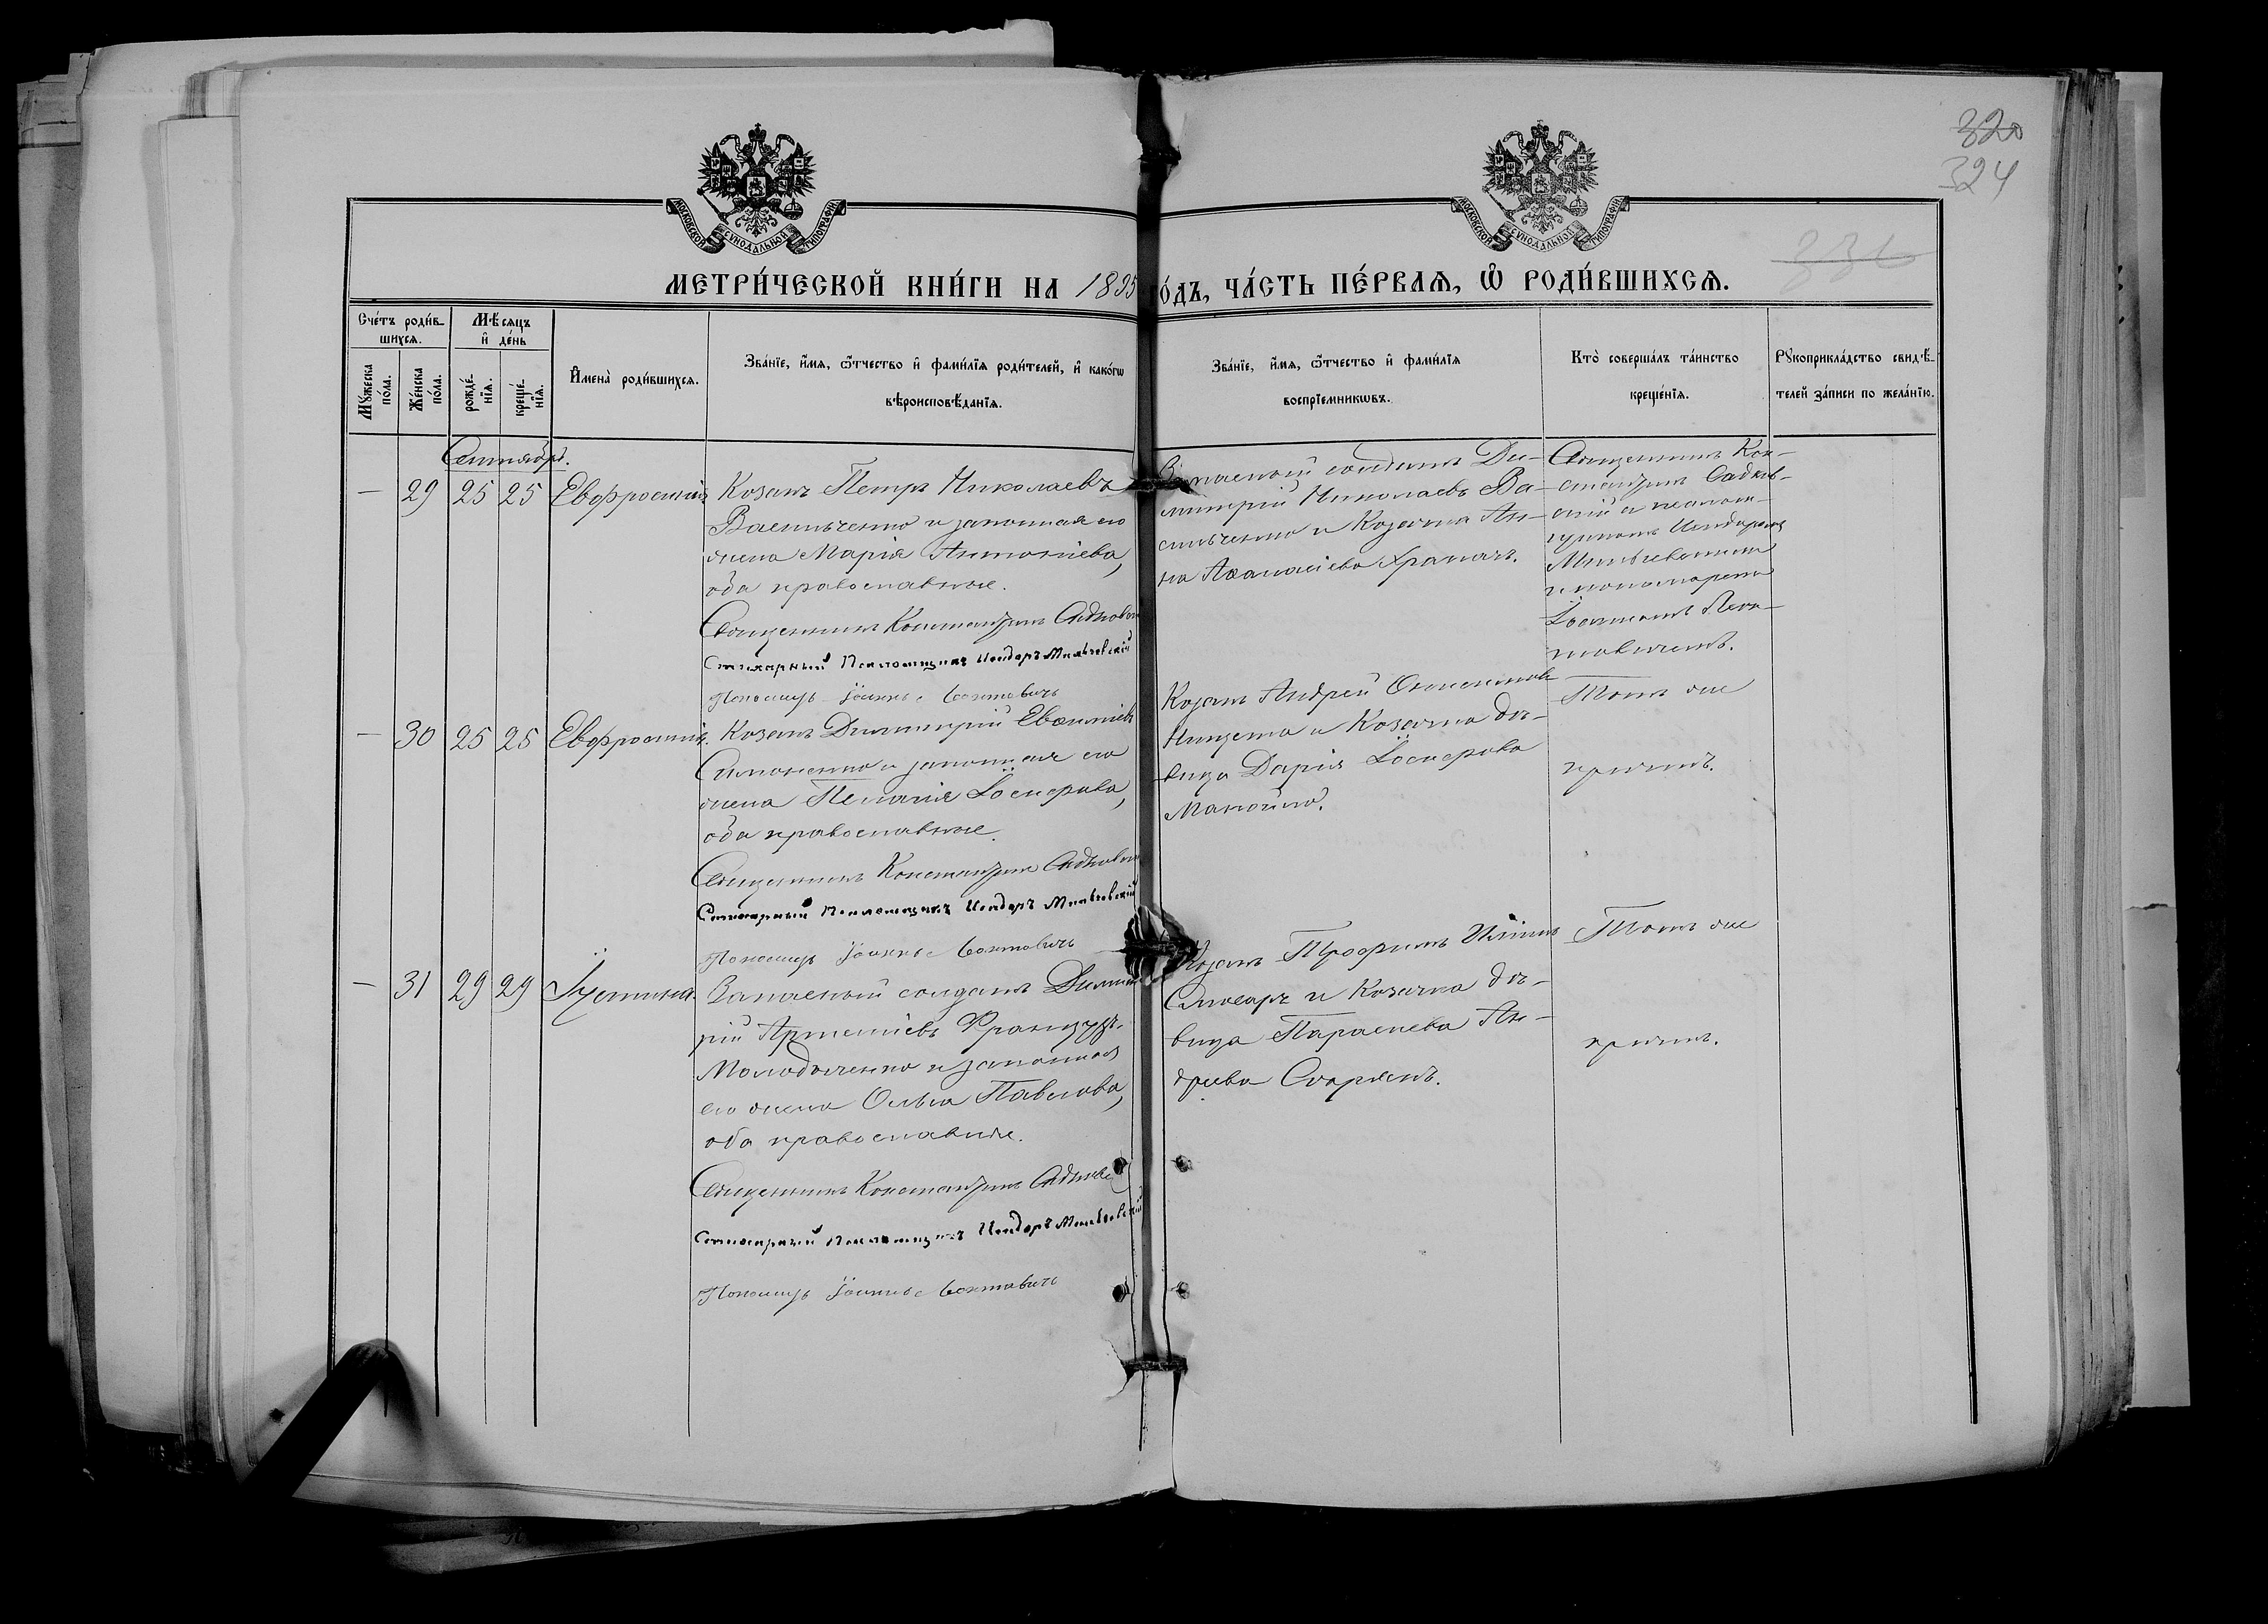 320
324
336
МОСКОВСКОЙ СѴНОДАЛЬНОЙ ТИПОГРАФІИ
МОСКОВСКОЙ СѴНОДАЛЬНОЙ ТИПОГРАФІИ
МЕТРИ́ЧЕСКОЙ КНИ́ГИ НА 1895 ГО́ДЪ, ЧА́СТЬ ПЕ́РВАѦ, Ѡ РОДИ́ВШИХСѦ.
Сче́тъ роди́в-
шихсѧ.
Мꙋ́жеска
по́ла.
Же́нска
по́ла.
Мѣ́сѧцъ
и҆ де́нь
рожде́-
нїѧ.
креще́-
нїѧ.
И҆мена̀ роди́вшихсѧ.
Зва́нїе, и҆́мѧ, ѻ҆́тчество и҆ фами́лїѧ роди́телей, и҆ како́гѡ
вѣроисповѣ́данїѧ.
Зва́нїе, и҆́мѧ, ѻ҆́тчество и҆ фами́лїѧ
воспрїе́мникѡвъ.
Кто̀ соверша́лъ та́инство
креще́нїѧ.
Рꙋкоприкла́дство свидѣ́-
телей за́писи по жела́нїю.
Сентябрь.
— 29 25 25 Евфросинія
Козакъ Петръ Николаевъ
Васильченко и законная его
жена Марія Антоніева,
оба православные.
Священникъ Константинъ Садковскій
Стихарный Псаломщикъ Исидоръ Мильчевскій
Пономарь Іоаннъ Леонтовичъ
Запасный солдатъ Ди-
митрій Николаевъ Ва-
сильченко и Козачка Ан-
на Аѳанасіева Храпачъ.
Священникъ Кон-
стантинъ Садков-
скій съ псалом-
щикомъ Исидоромъ
Мильчевскимъ
и пономаремъ
Іоанномъ Леон-
товичемъ.
— 30 25 25 Евфросинія.
Козакъ Димитрій Евѳиміевъ
Симоненко и законная его
жена Пелагія Іосифова,
оба православные.
Священникъ Константинъ Садковскій
Стихарный Псаломщикъ Исидоръ Мильчевскій
Пономарь Іоаннъ Леонтовичъ
Козакъ Андрей
и Козачка дѣ-
вица Дарія Іосифова
Манойло.
Тотъ же
причтъ.
— 31 29 29 Іустина.
Запасный солдатъ Димит-
рій Артеміевъ Французъ-
Молодыченко и законная
его жена Ольга Павлова,
оба православные.
Священникъ Константинъ Садковскій
Стихарный Псаломщикъ Исидоръ Мильчевскій
Пономарь Іоаннъ Леонтовичъ
Козакъ Трофимъ Иліинъ
Слюсарь и Козачка дѣ-
вица Параскева Ан-
дреева Скорякъ.
Тотъ же
причтъ.